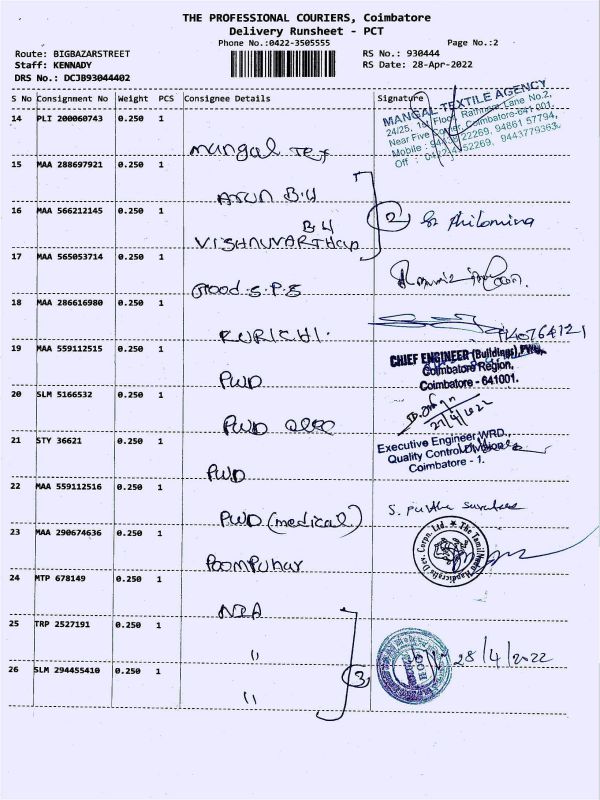 THE PROFESSIONAL COURIERS, Coimbatore
Delivery Runsheet - PCT
Phone No.:0422-3505555 Page No.:2
Route: BIGBAZARSTREET RS No.: 930444
Staff: KENNADY RS Date: 28-Apr-2022
DRS No.: DCJB93044402
S No Consignment No Weight PCS Consignee Details Signature
14 PLI 200060743 0.250 1
Mangal Tex
MANGAL TEXTILE AGENCY
24/25, 1st Floor, Rathinam Lane No.2,
Near Five Corner, Coimbatore-641 001.
15 MAA 288697921 0.250 1
Arun B.H
16 MAA 566212145 0.250 1
B H
VISHNUVARTHan
2
Philomina
17 MAA 565053714 0.250 1
Good.S.P.S
18 MAA 286616980 0.250 1
KURICHI.
19 MAA 559112515 0.250 1
PWD
CHIEF ENGINEER (Buildings),PWD,
Coimbatore Region,
Coimbatore - 641001.
20 SLM 5166532 0.250 1
PWD
27/4/2022
21 STY 36621 0.250 1
PWD
Executive Engineer WRD.,
Quality Control Division
Coimbatore - 1.
22 MAA 559112516 0.250 1
PWD (medical)
23 MAA 290674636 0.250 1
Poompuhar
24 MTP 678149 0.250 1
NIA
25 TRP 2527191 0.250 1
"
28/4/2022
26 SLM 294455410 0.250 1
3
"